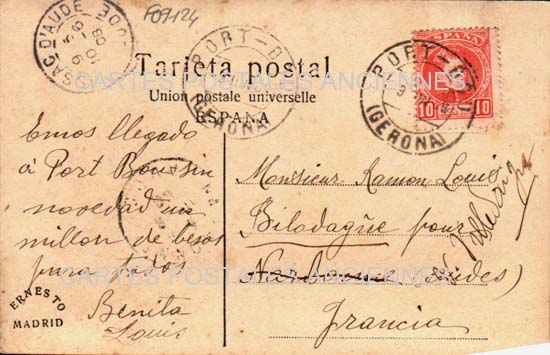 F09124
AUDE
SAC D'AUDE
PORT-B
(GERONA)
PORT-B
(GERONA)
ESPAÑA
10 10
Tarjeta postal
Union postale universelle
ESPAÑA
CARTES POSTALES ANCIENNES
Emos llegado
á Port Bou sin
novedad un
millon de besos
para todos
Benita
Louis
Monsieur Ramon Louis
Biladagüe pour
(Audes)
Francia
CARTES POSTALES ANCIENNES
ERNESTO
MADRID